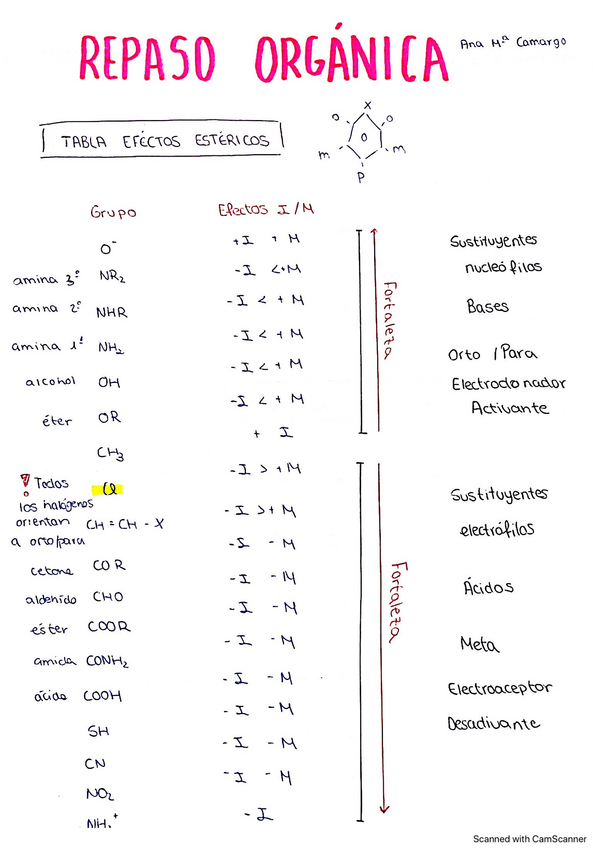 REPASO ORGÁNICA
Ana Mª Camargo
TABLA EFECTOS ESTÉRICOS
X
o o
o
m m
P
Grupo Efectos I/M
O⁻ +I +M
amina 3º NR₂ -I <+M
amina 2º NHR -I < +M
amina 1º NH₂ -I < +M
alcohol OH -I < +M
éter OR -I < +M
CH₃ + I
! Todos Cl -I > +M
los halógenos
orientan CH = CH - X -I >+ M
a orto/para
cetona COR -I -M
aldehido CHO -I -M
éster COOR -I -M
amida CONH₂ -I -M
ácido COOH -I -M
SH -I -M
CN -I -M
NO₂ -I -M
NH₃⁺ -I
Fortaleza
Sustituyentes
nucleófilos
Bases
Orto / Para
Electrodonador
Activante
Fortaleza
Sustituyentes
electrófilos
Ácidos
Meta
Electroaceptor
Desactivante
Scanned with CamScanner